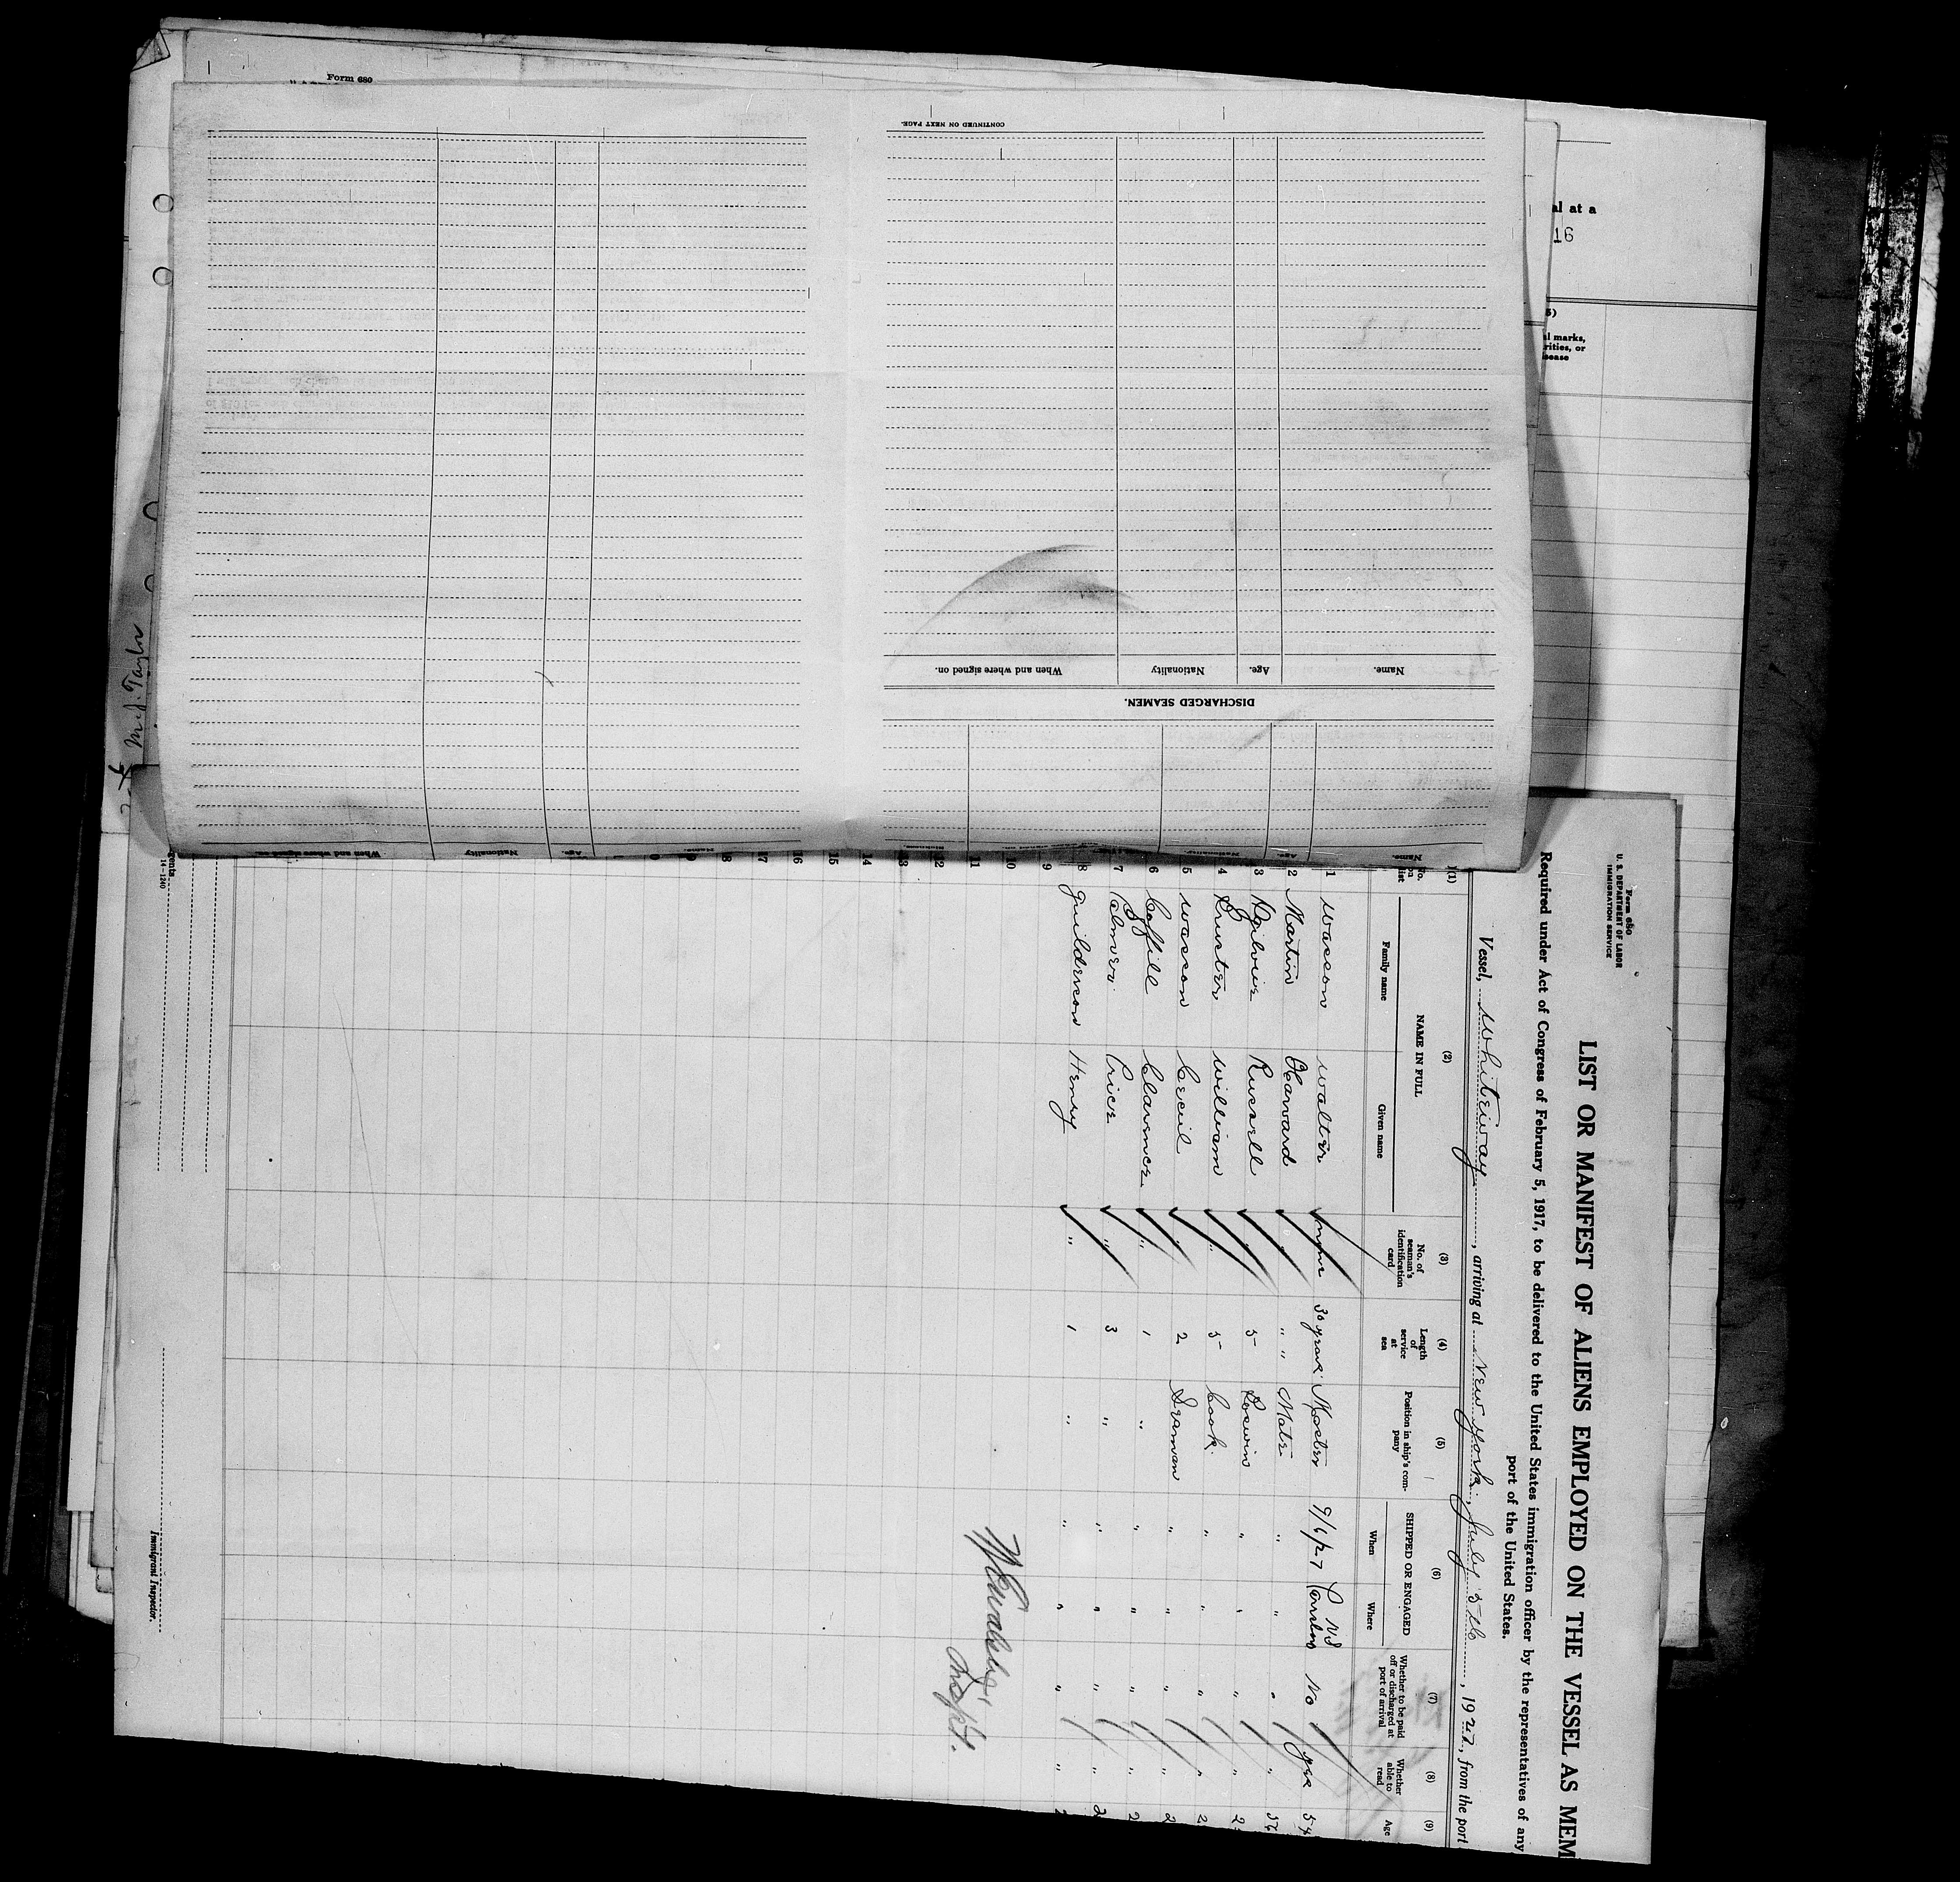 Form 680
U. S. DEPARTMENT OF LABOR
IMMIGRATION SERVICE
LIST OR MANIFEST OF ALIENS EMPLOYED ON THE VESSEL AS MEM
Required under Act of Congress of February 5, 1917, to be delivered to the United States immigration officer by the representatives of any
port of the United States.
Vessel, Whiteway, arriving at New York, July 5th, 1922, from the port
(1) (2) (3) (4) (5) (6) (7) (8) (9)
No. on list NAME IN FULL No. of seaman's identification card Length of service at sea Position in ship's company SHIPPED OR ENGAGED Whether to be paid off or discharged at port of arrival Whether able to read Age
Family name Given name When Where
1 Wasson Walter None 30 years Master No yes 54
2 Martin Howard " " " Mate " " " "
3 Ogilvie Russell " 5 " " " "
4 William " 5 Cook " " " "
5 Wasson Cecil " 2 Seaman " " " "
6 Coffill Clarence " 1 " " " " "
7 Price " 3 " " " " "
8 Guilderson Henry " 1 " " " " "
9
10
11
12
13
14
15
16
17
18
Inspt.
Immigrant Inspector.
14-1240
DISCHARGED SEAMEN.
Name. Age. Nationality When and where signed on.
CONTINUED ON NEXT PAGE.
Name. Age. Nationality When and where signed on.
Form 680
al at a
16
5)
al marks,
rities, or
isease
Taylor